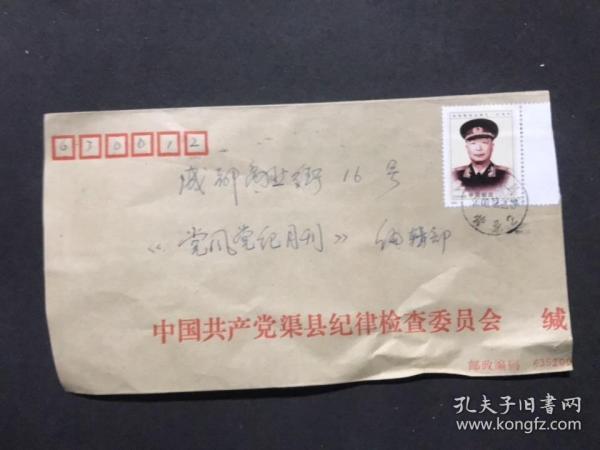 630012
成都商业街16号
《党风党纪月刊》编辑部
中国共产党渠县纪律检查委员会 缄
邮政编码 635200
孔夫子旧书网
www.kongfz.com